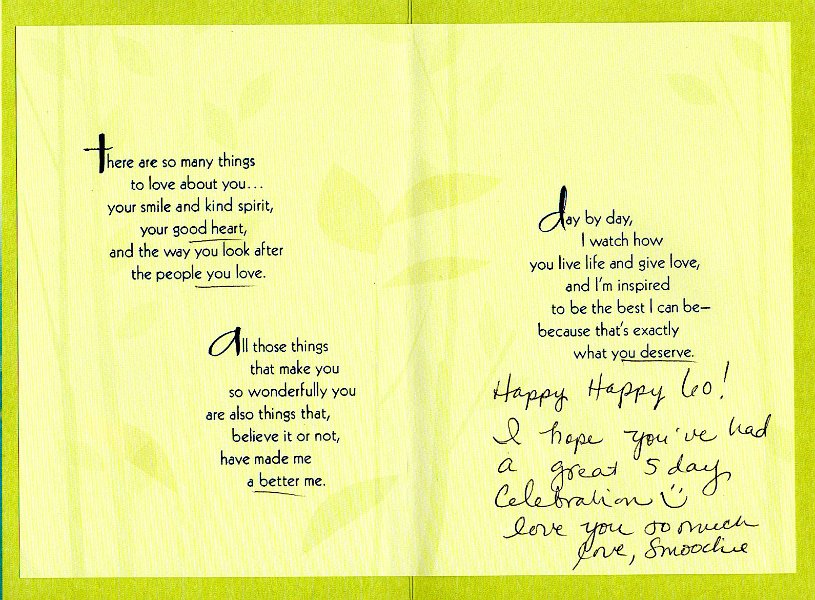 there are so many things
to love about you...
your smile and kind spirit,
your good heart,
and the way you look after
the people you love.
all those things
that make you
so wonderfully you
are also things that,
believe it or not,
have made me
a better me.
day by day,
I watch how
you live life and give love,
and I'm inspired
to be the best I can be–
because that's exactly
what you deserve.
Happy Happy 60!
I hope you've had
a great 5 day
Celebration
love you so much
love, Smoochie